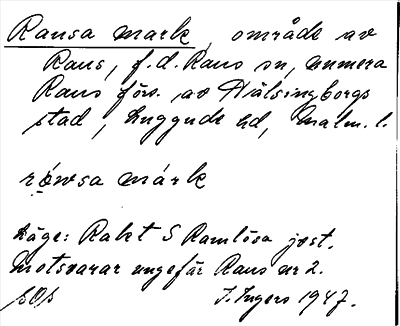 Rausa mark, område av
Raus, f.d. Raus sn, numera
Raus förs. av Hälsingborgs
stad, Luggude hd, Malm. l.
rówsa márk
Läge: Rakt S Ramlösa jvst.
Motsvarar ungefär Raus nr 2.
I. Ingers 1947.